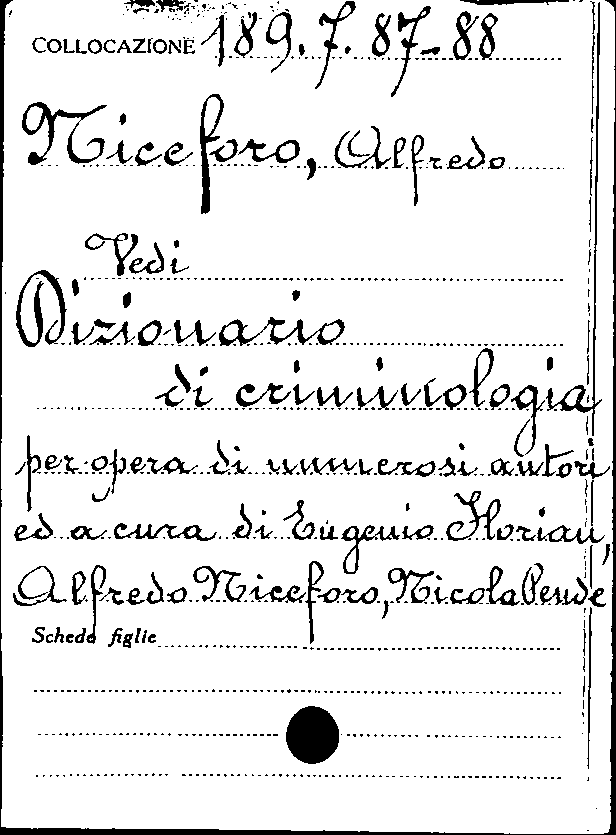 COLLOCAZIONE 189.7.87-88
Niceforo, Alfredo
Vedi
Dizionario
di criminologia
per opera di numerosi autori
ed a cura di Eugenio Florian,
Alfredo Niceforo, Nicola Pende
Schede figlie